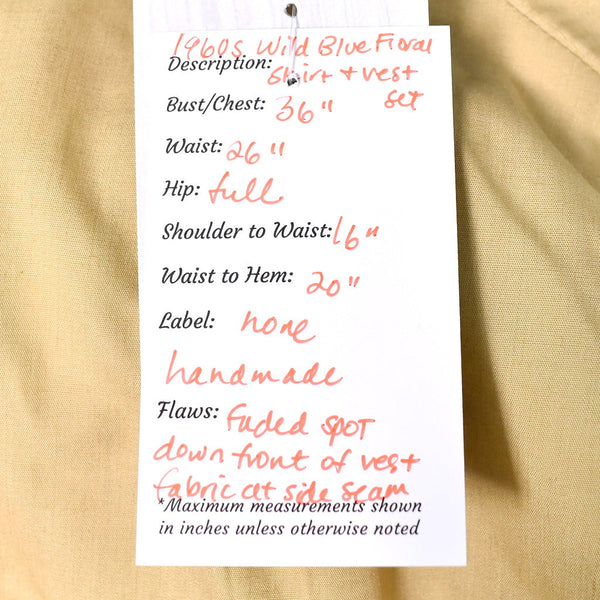 1960s Wild Blue Floral
Description: Skirt + vest
set
Bust/Chest: 36"
Waist: 26"
Hip: full
Shoulder to Waist: 16"
Waist to Hem: 20"
Label: none
handmade
Flaws: Faded spot
down front of vest
fabric at side seam
*Maximum measurements shown
in inches unless otherwise noted